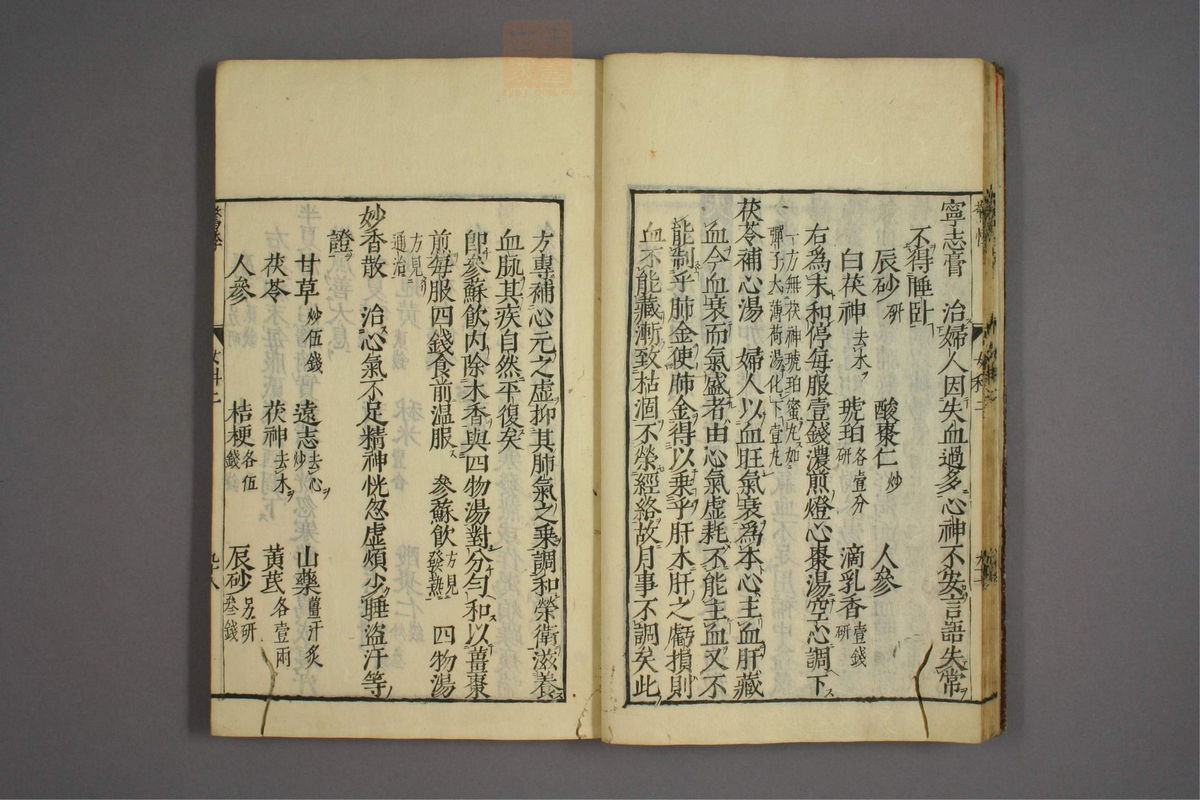 寧志膏 治婦人因失血過多心神不安言語失常
不得睡臥
辰砂研 酸棗仁炒 人參
白茯神去木 琥珀各壹分研 滴乳香壹錢研
右為末和停每服壹錢濃煎燈心棗湯空心調下
一方無茯神琥珀蜜丸如
彈子大薄荷湯化下壹丸
茯苓補心湯 婦人以血旺氣衰為本心主血肝藏
血今血衰而氣盛者由心氣虚耗不能主血又不
能制乎肺金使肺金得以乗乎肝木肝之虧損則
血不能藏漸致枯涸不榮經絡故月事不調矣此
方專補心元之虚抑其肺氣之乗調和榮衛滋養
血脉其疾自然平復矣
卽參蘇飲内除木香與四物湯對分勻和以薑棗
煎每服四錢食前温服 參蘇飲方見發熱 四物湯
方見通治
妙香散 治心氣不足精神恍忽虚煩少睡盗汗等
證
甘草炒伍錢 遠志去心炒 山藥薑汗炙
茯苓 茯神去木 黄茋各壹兩
人參 桔梗各伍錢 辰砂另研叁錢
女科二
九八